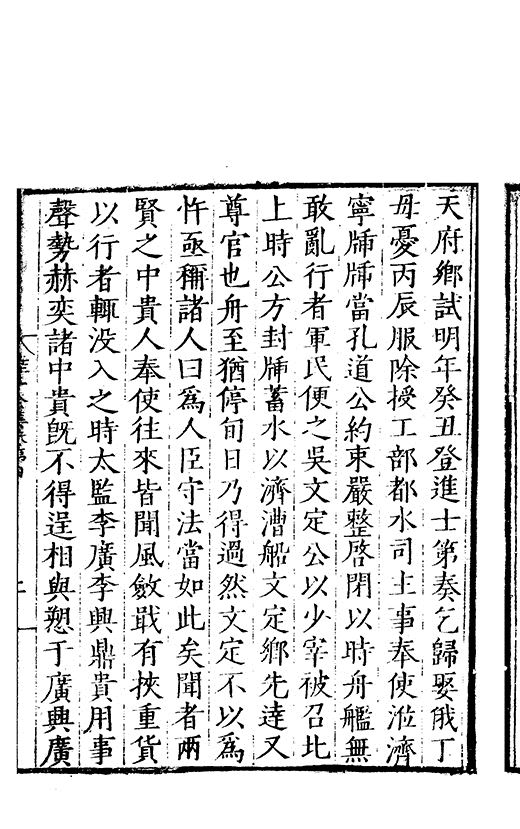 天府鄉試明年癸丑登進士第奏乞歸娶俄丁
母憂丙辰服除授工部都水司主事奉使涖濟
寧牐牐當孔道公約束嚴整啓閉以時舟艦無
敢亂行者軍民便之吳文定公以少宰被召北
上時公方封牐蓄水以濟漕船文定鄉先逹又
尊官也舟至猶停旬日乃得過然文定不以爲
忤亟稱諸人曰爲人臣守法當如此矣聞者兩
賢之中貴人奉使往來皆聞風斂戢有挾重貨
以行者輒没入之時太監李廣李興鼎貴用事
聲勢赫奕諸中貴旣不得逞相與愬于廣興廣